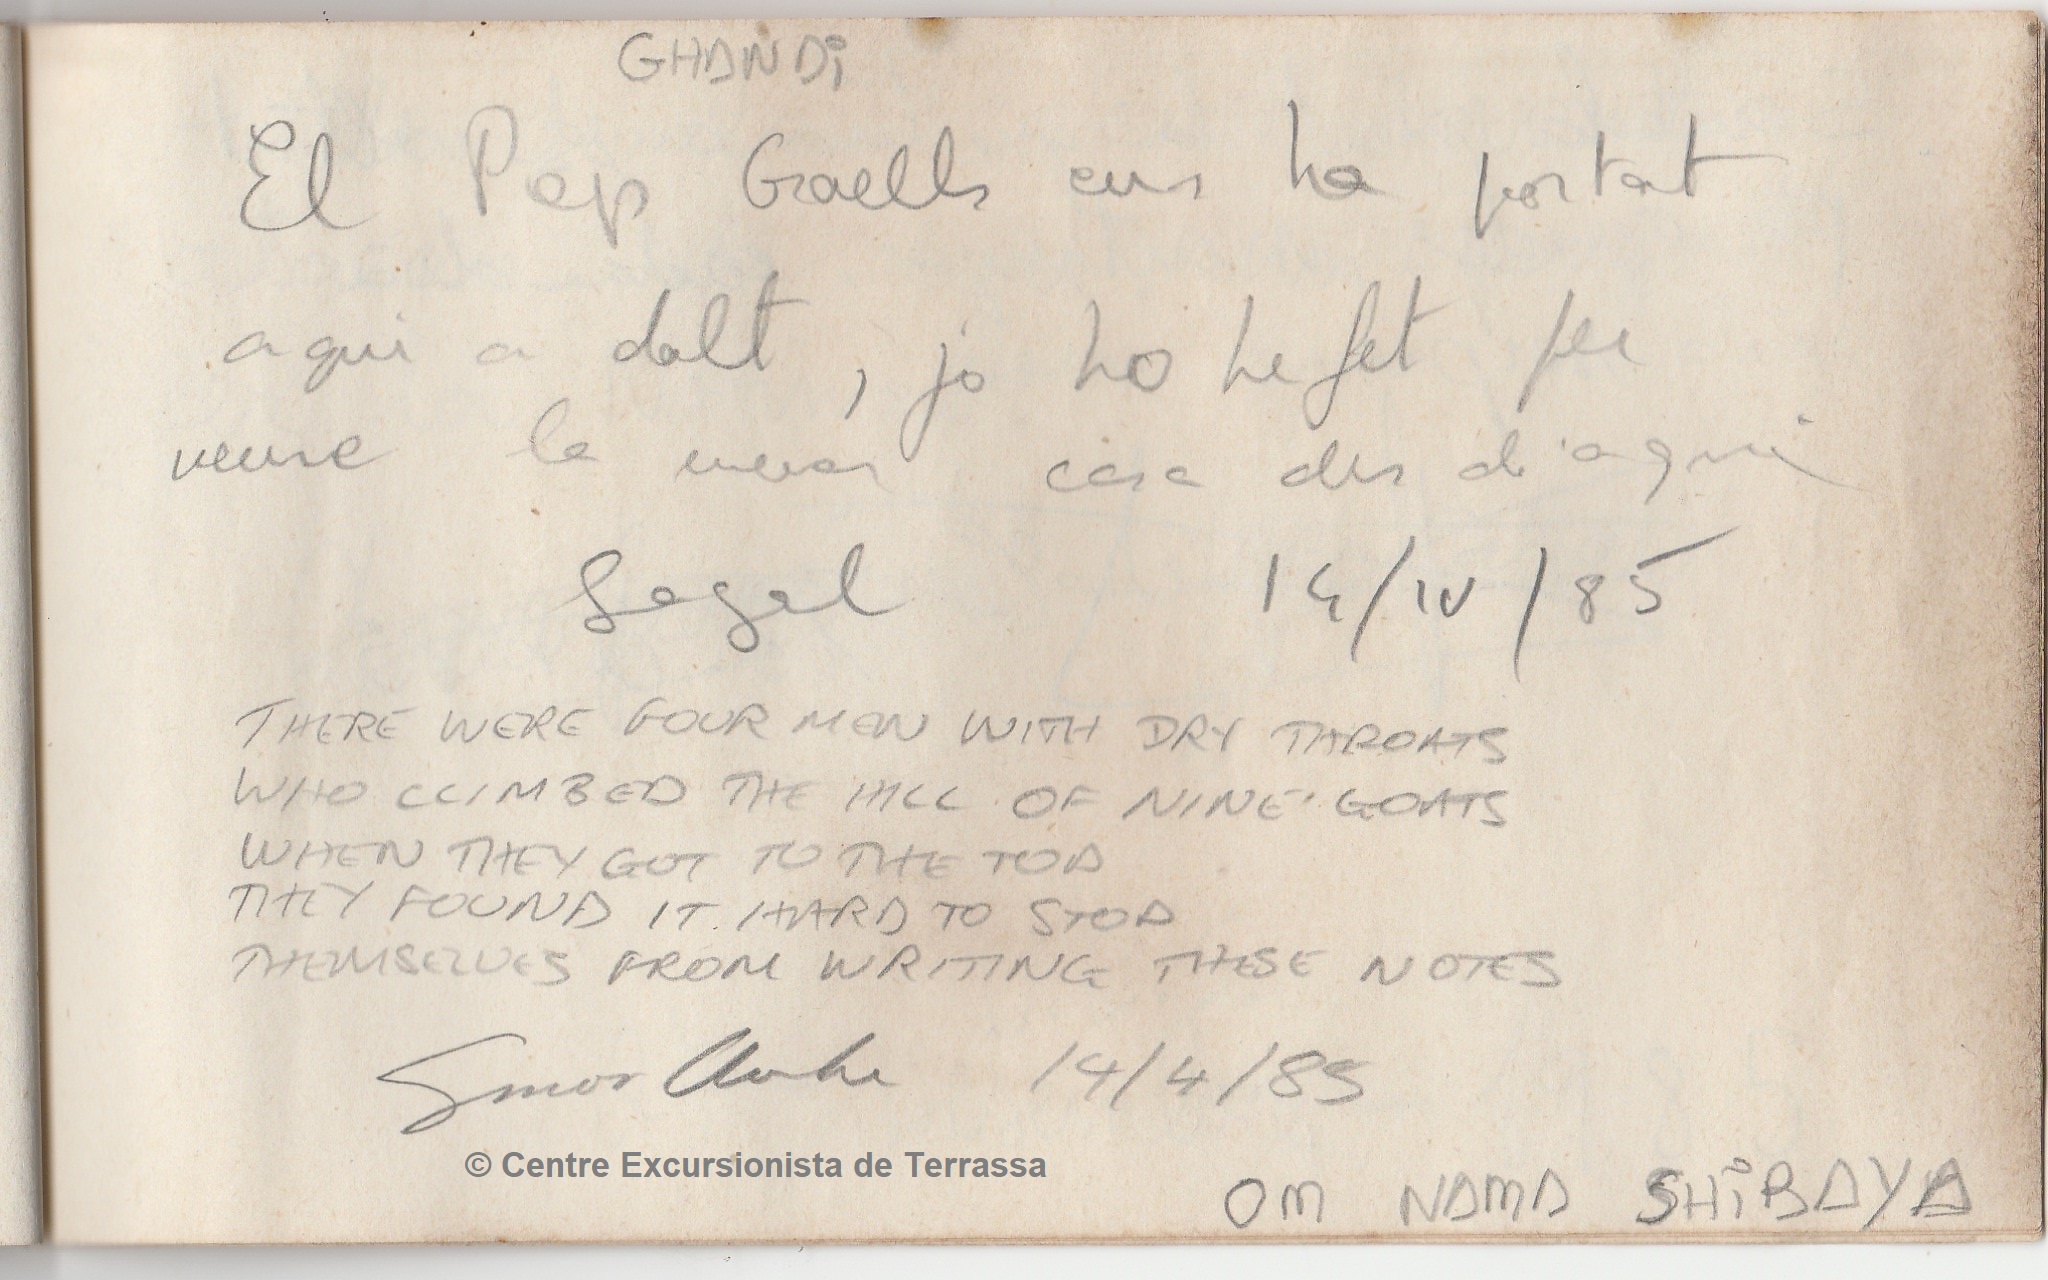 GHANDi
El Pep Graells ens ha portat
aqui a dalt, jo ho he fet per
veure la meva casa des d'aqui
14/IV/85
THERE WERE FOUR MEN WITH DRY THROATS
WHO CLIMBED THE HILL OF NINE GOATS
WHEN THEY GOT TO THE TOP
THEY FOUND IT HARD TO STOP
THEMSELVES FROM WRITING THESE NOTES
14/4/85
© Centre Excursionista de Terrassa
OM NAMA SHiBAYA